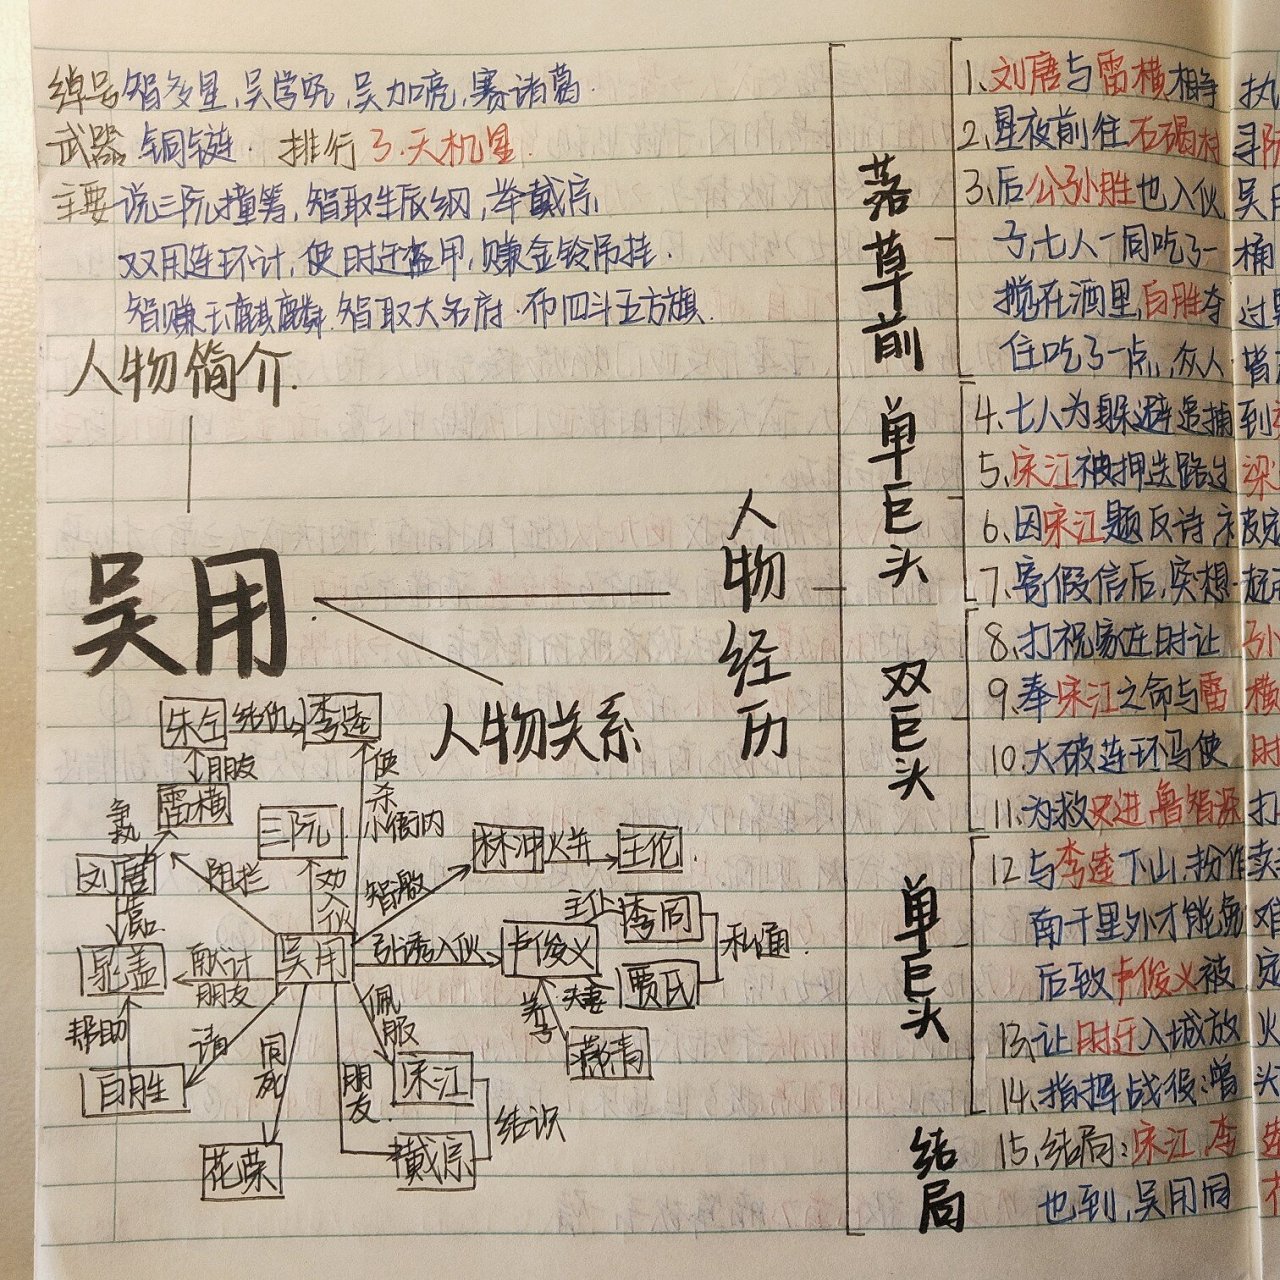 绰号 智多星,吴学究,吴加亮,赛诸葛.
武器 铜链. 排行 3.天机星
主要 说三阮撞筹,智取生辰纲,举戴宗
双用连环计,使时迁盗甲,赚金铃吊挂.
智赚玉麒麟.智取大名府.布四斗五方旗.
人物简介.
吴用
人物关系
人物经历
朱仝 结仇 李逵
朋友
雷横
争执
刘唐
三阮
使杀小衙内
阻拦
劝入伙
智激
林冲 火并 王伦
晁盖
献计
朋友
吴用
引诱入伙
卢俊义
主仆
李固
私通.
夫妻
贾氏
养子
燕青
帮助
请
白胜
同死
花荣
佩服
宋江
朋友
戴宗
结识
落草前
1.刘唐与雷横相争 执
2.星夜前往石碣村 寻阮
3.后公孙胜也入伙, 吴用
了,七人一同吃了一 桶
搅在酒里,白胜夺 过
住吃了一点,众人
单巨头
4.七人为躲避追捕 到
5.宋江被押送路过 梁
6.因宋江题反诗
7.寄假信后,突想
双巨头
8.打祝家庄时让 孙
9.奉宋江之命与雷 横
10.大破连环马使 时
11.为救史进,鲁智深 打
单巨头
12.与李逵下山.扮作 卖
南千里外才能免 难
后致卢俊义被 定
13.让时迁入城放 火
14.指挥战役:曾 头
结局
15.结局:宋江,李 逵
也到,吴用同